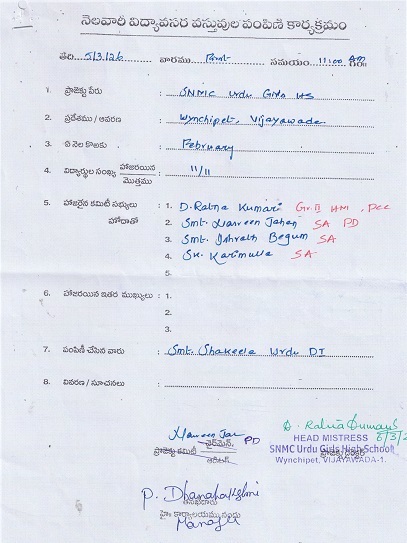 నెలవారీ విద్యావసర వస్తువుల పంపిణీ కార్యక్రమం
తేది. 5/3/26 వారము సమయం. 11:00 AM
1. ప్రాజెక్టు పేరు : SNMC Urdu Girls HS
2. ప్రదేశము / ఆవరణ : Wynchipet, Vijayawada
3. ఏ నెల కొఱకు : February
4. విద్యార్థుల సంఖ్య హాజరయిన / మొత్తము : 11/11
5. హాజరైన కమిటీ సభ్యులు హోదాతో : 1. D. Ratna Kumari Gr.II HM, Pcc
2. Smt. Nasreen Jahan SA PD
3. Smt. Ishrath Begum SA
4. Sk. Karimulla SA
5.
6. హాజరయిన ఇతర ముఖ్యులు : 1.
2.
3.
7. పంపిణీ చేసిన వారు : Smt. Shakeela Urdu DI
8. వివరణ / సూచనలు :
PD
ప్రాజెక్టు కమిటీ ఛైర్మన్
D. Ratna Kumari
HEAD MISTRESS
SNMC Urdu Girls High School
Wynchipet, VIJAYAWADA-1.
P. Dhanalakshmi
Manager